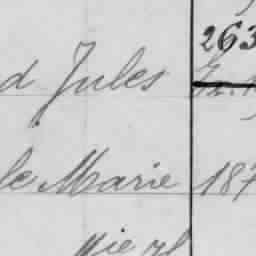 263
d Jules
le Marie 187